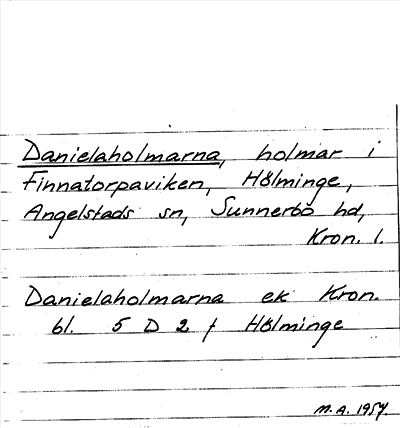 Danielaholmarna, holmar i
Finnatorpaviken, Hölminge,
Angelstads sn, Sunnerbo hd,
Kron. l.
Danielaholmarna ek Kron.
bl. 5 D 2 f Hölminge
M. A. 1957.